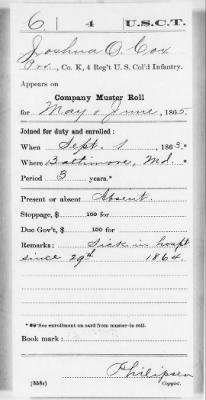 6 | 4 | U.S.C.T.
Joshua O. Cox
Pvt., Co. K, 4 Reg't U. S. Col'd Infantry.
Appears on
Company Muster Roll
for May & June, 1865.
Joined for duty and enrolled:
When Sept. 1, 1863.*
Where Baltimore, Md.
Period 3 years.*
Present or absent Absent.
Stoppage, $ 100 for
Due Gov't, $ 100 for
Remarks: Sick in hospt
since 29th 1864.
* See enrollment on card from muster-in roll.
Book mark:
Philipsen
(358c) Copyist.